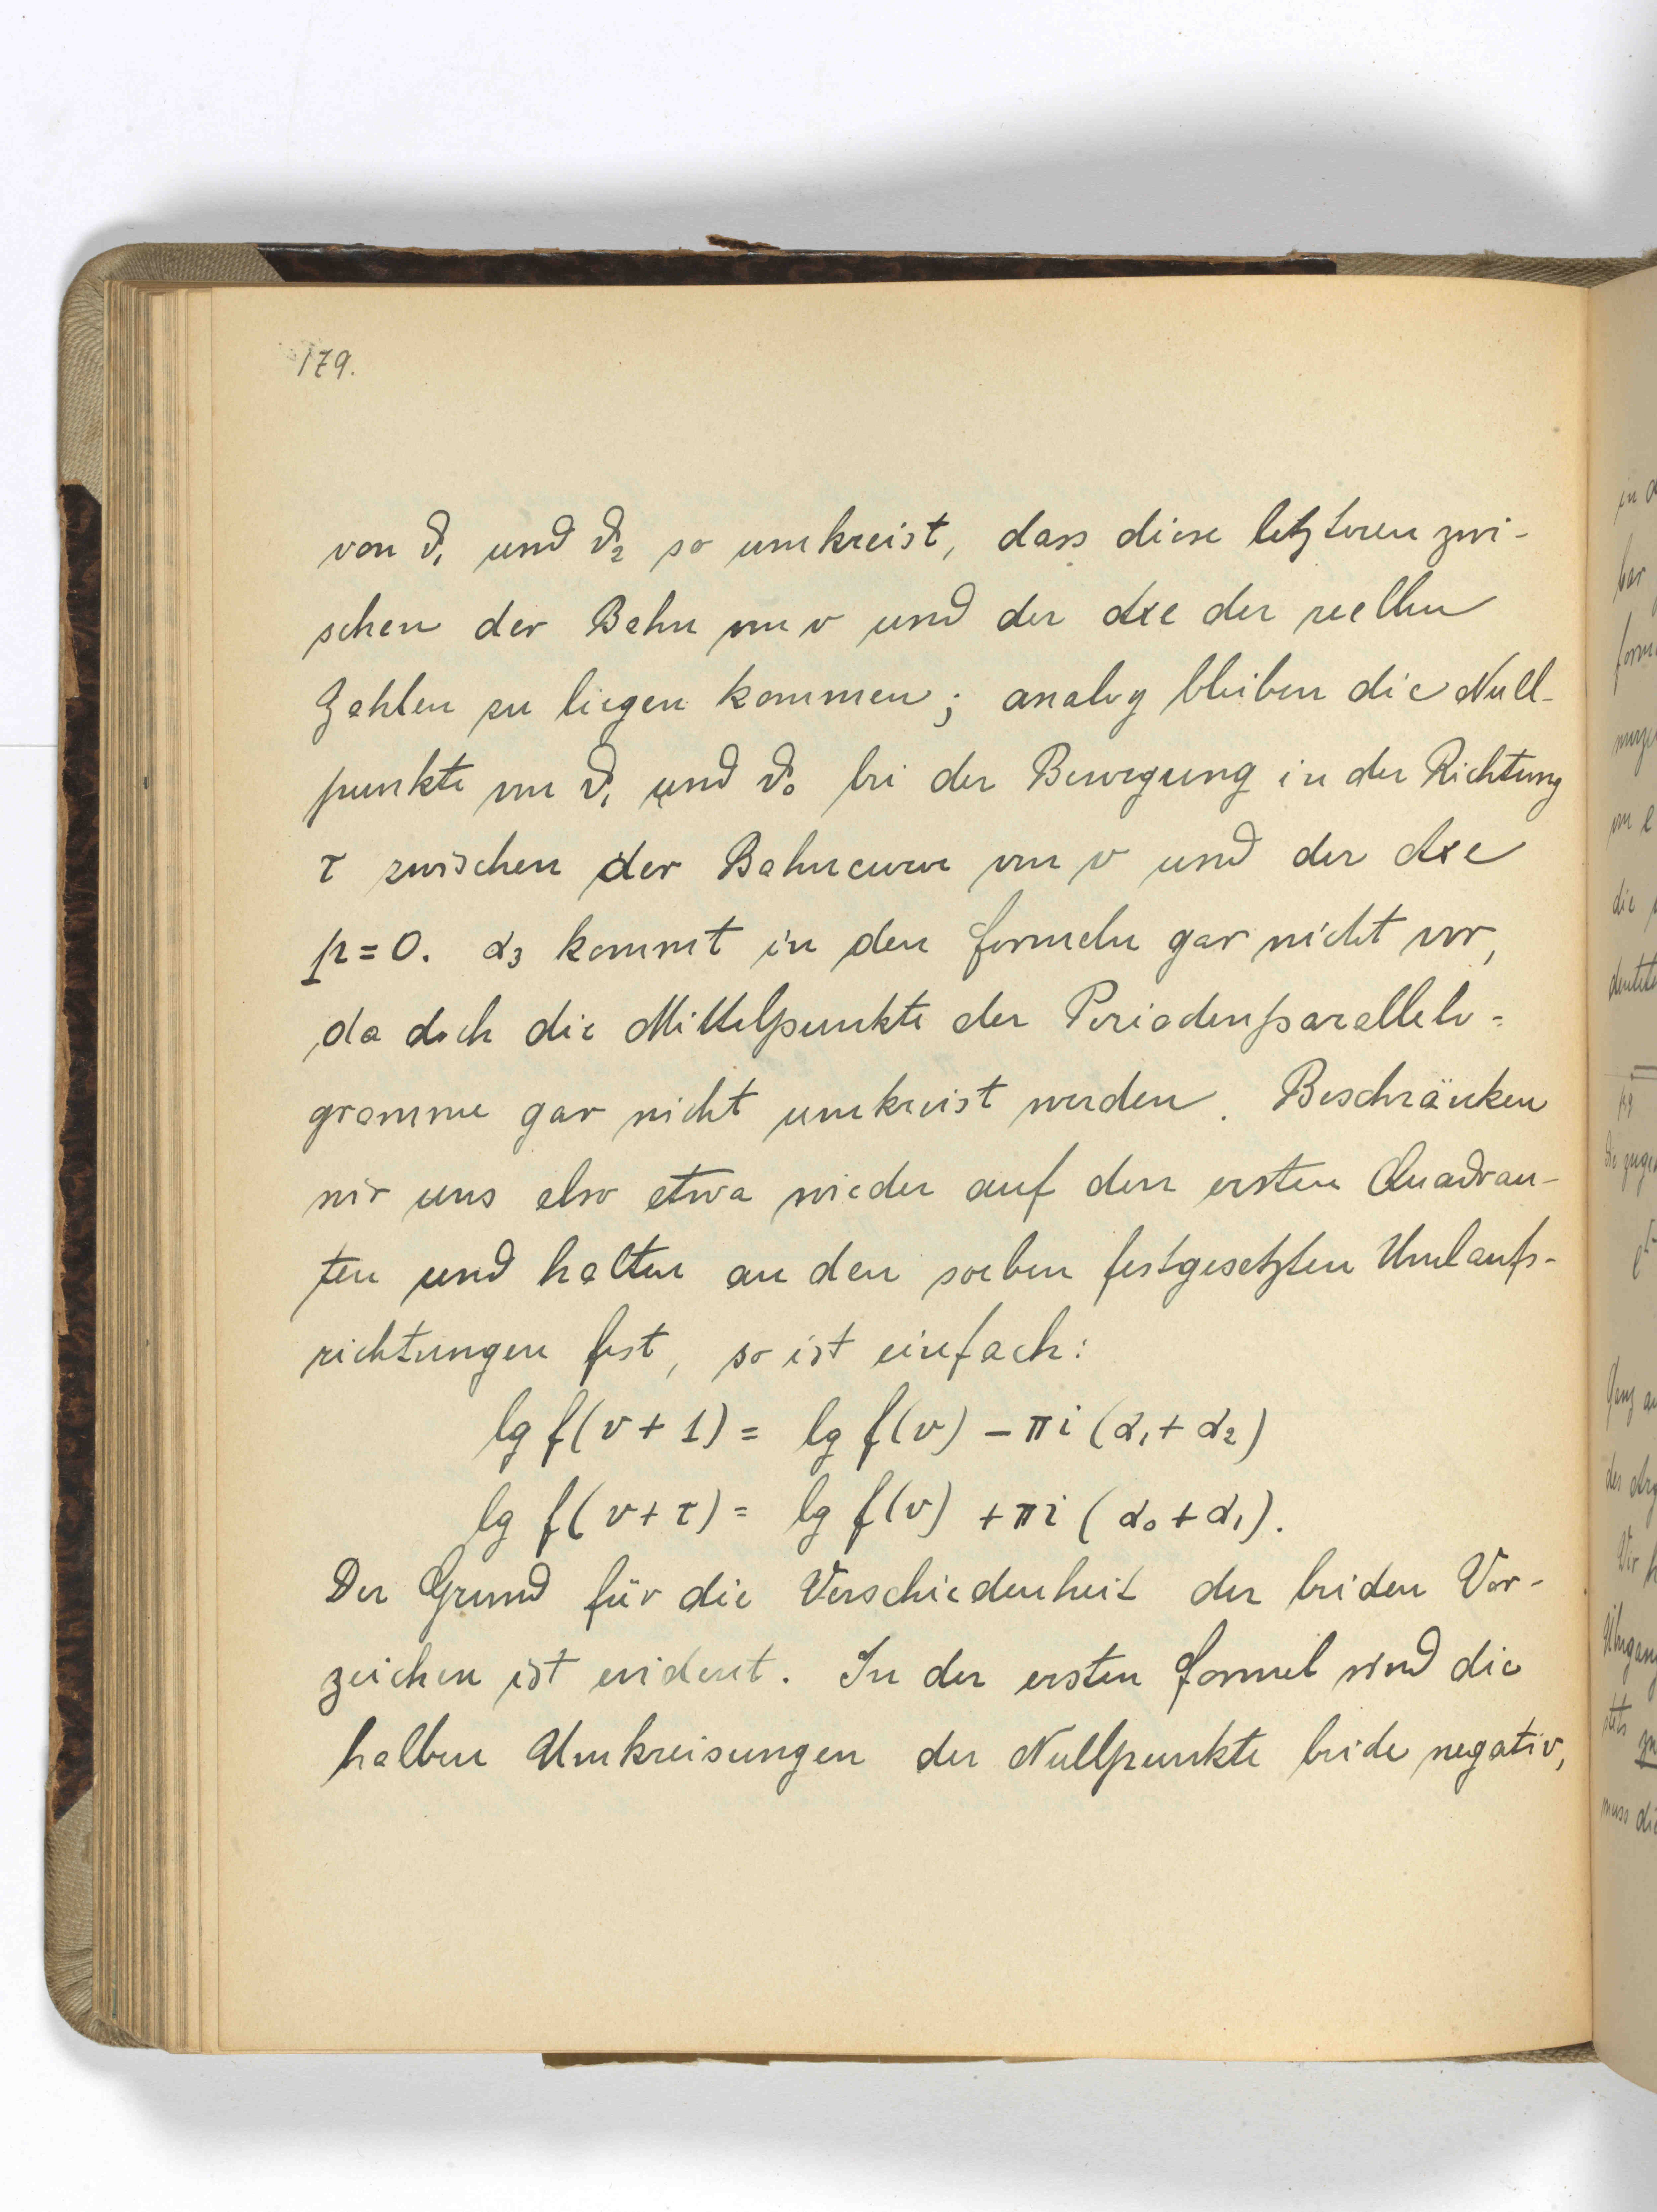 179.
von ϑ₁ und ϑ₂ so umkreist, dass diese letzteren zwi-
schen der Bahn von v und der Axe der reellen
Zahlen zu liegen kommen; analog bleiben die Null-
punkte von ϑ₁ und ϑ₀ bei der Bewegung in der Richtung
τ zwischen der Bahncurve von v und der Axe
p=0. α₃ kommt in den Formeln gar nicht vor,
da doch die Mittelpunkte der Periodenparallelo-
gramme gar nicht umkreist werden. Beschränken
wir uns also etwa wieder auf den ersten Quadran-
ten und halten an den soeben festgesetzten Umlaufs-
richtungen fest, so ist einfach:
lg f(v+1) = lg f(v) − πi (α₁+α₂)
lg f(v+τ) = lg f(v) + πi (α₀+α₁).
Der Grund für die Verschiedenheit der beiden Vor-
zeichen ist evident. In der ersten Formel sind die
halben Umkreisungen der Nullpunkte beide negativ,